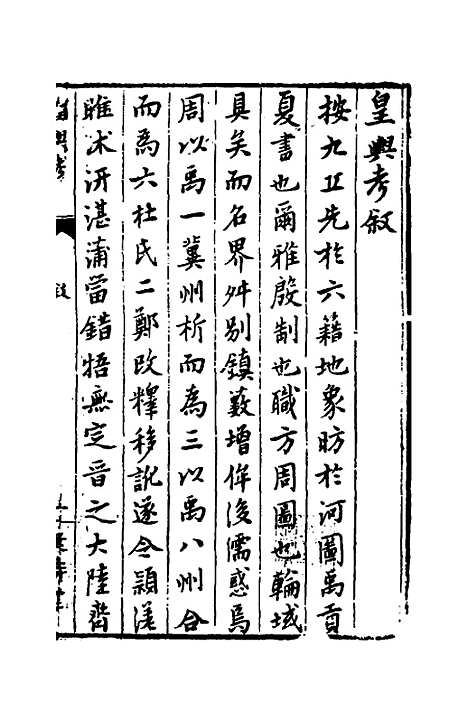 皇輿考敘
按九丘先於六籍地象昉於河圖禹貢
夏書也爾雅殷制也職方周圖也輪域
具矣而名界舛別鎮藪增侔後儒惑焉
周以禹一冀州析而為三以禹八州合
而為六杜氏二鄭改釋移訛遂令潁湛
雎沭汧湛蒲甾錯牾無定晉之大陸齊
皇輿考
敘